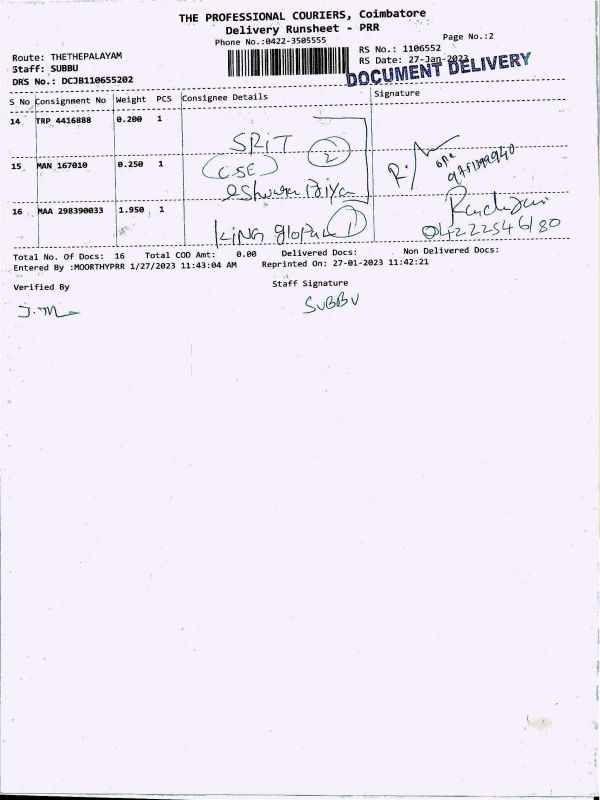 THE PROFESSIONAL COURIERS, Coimbatore
Delivery Runsheet - PRR
Phone No.:0422-3505555
Page No.:2
Route: THETHEPALAYAM
Staff: SUBBU
DRS No.: DCJB110655202
RS No.: 1106552
RS Date: 27-Jan-2023
DOCUMENT DELIVERY
S No Consignment No Weight PCS Consignee Details Signature
14 TRP 4416888 0.200 1
SRiT
(CSE) 2
15 MAN 167010 0.250 1
eshwara Priya
16 MAA 298390033 1.950 1
KiNG 1
04222546180
Total No. Of Docs: 16 Total COD Amt: 0.00 Delivered Docs: Non Delivered Docs:
Entered By :MOORTHYPRR 1/27/2023 11:43:04 AM Reprinted On: 27-01-2023 11:42:21
Verified By
Staff Signature
J.M
SUBBU